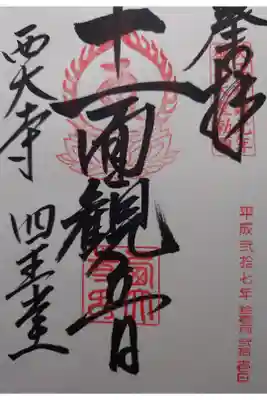 奉拝
十一面観音
西大寺 四王堂
平成弐拾七年拾壱月弐拾壱日